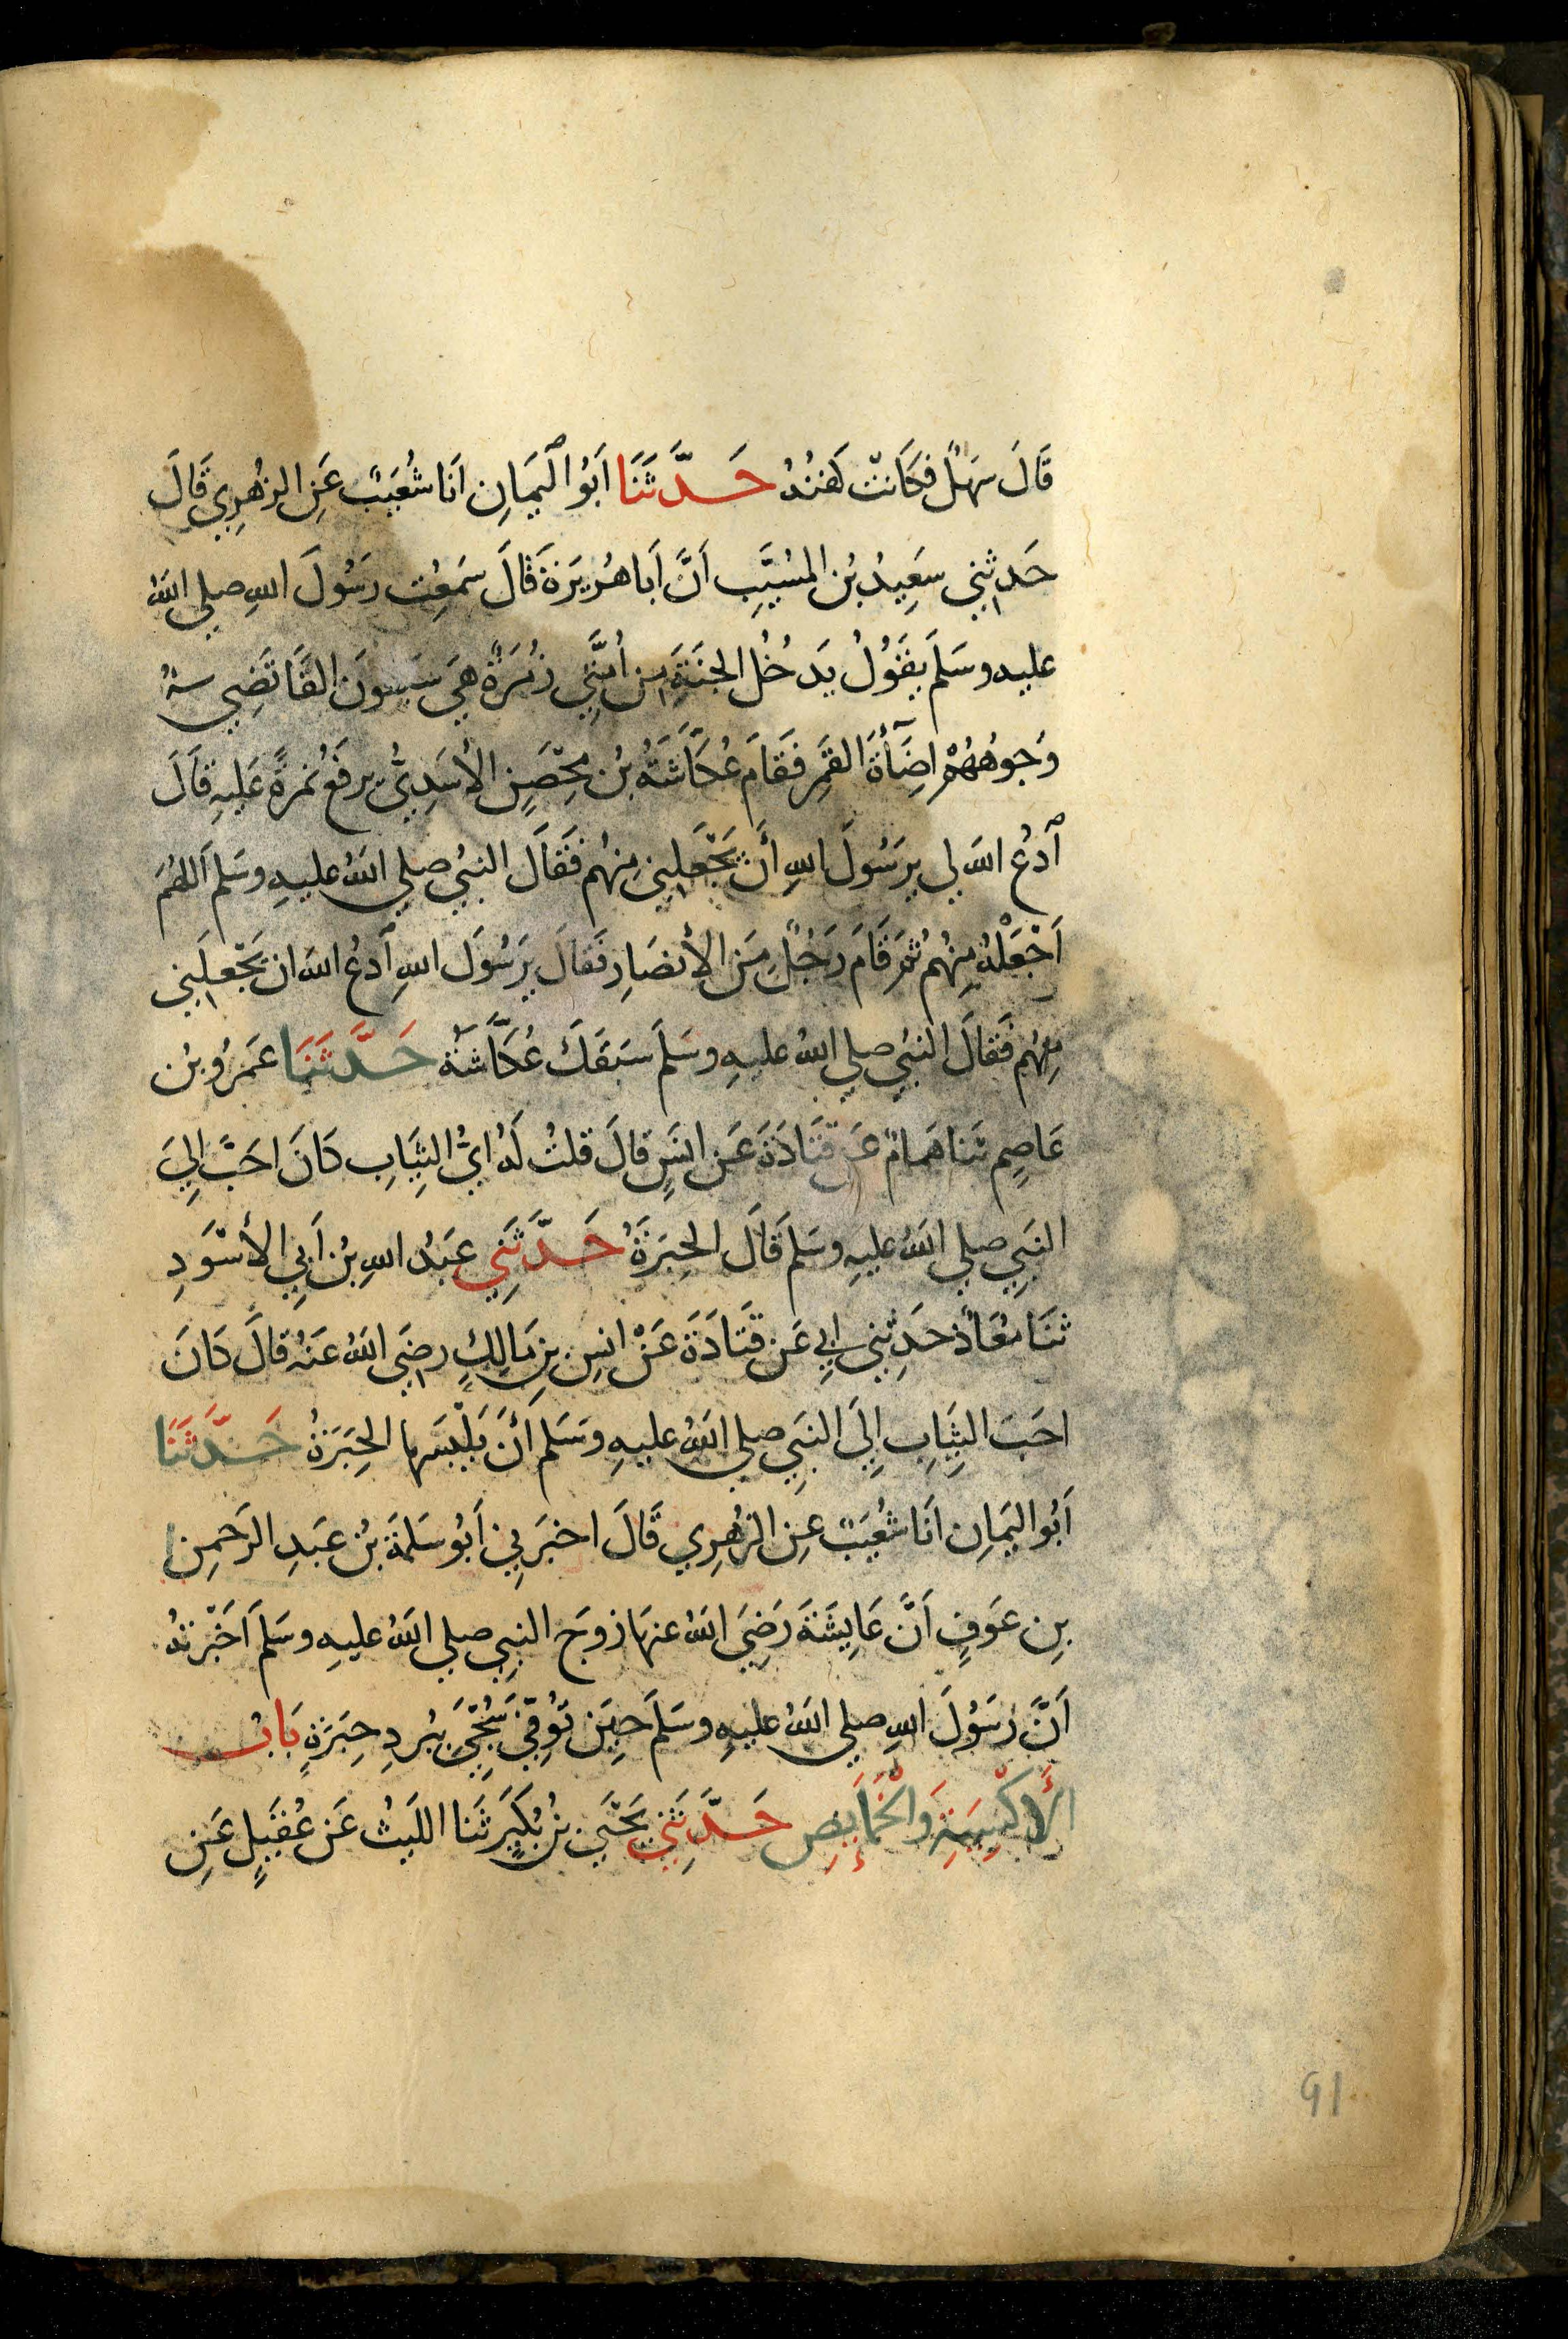 قَالَ سَهْلٌ فَكَانَتْ كَفَنُهُ حَدَّثَنَا اَبُو الْيَمَانِ اَنَا شُعَيْبٌ عَنِ الزُهرِي قَالَ
حَدثني سَعِيدُ بْنُ المسَيَّبِ اَنَّ اَبَا هُرَيرَةَ قَالَ سَمِعْت رَسُولَ اللهِ صلي اللهُ
عليه وسَلَمَ يقَولُ يَدخُل الجنَةَ مِن اُمَّتِي زُمرَةٌ هِيَ سَبعونَ الفًا تَضِي
وَجوهُهُمْ اضَآءَةَ القَمرِ فَقَامَ عُكَّاشَةُ بْنُ مِحْصَنٍ الأسَدِيُّ يرفَعُ نمرةً عَليهِ قَالَ
ٱدعُ اللهَ لي يرَسُولَ اللهِ أَنْ يَجْعَلَني مِنهُم فَقَالَ النبيُ صلي اللهُ عليهِ وسَلم اَللهُمَ
اَجْعَلْهُ مِنْهُم ثُمَ قَامَ رَجُلٌ مِنَ الأنصَارِ فَقَالَ يرَسُولَ اللهِ ٱدعُ اللهَ ان يَجْعَلَني
مِنهُم فَقَالَ النبيُ صلي اللهُ عليهِ وسَلَمَ سَبَقَكَ عُكَّاشَةُ حَدَّثَنَا عَمرُو بن
عَاصِم ثَنا هَمامٌ عَن قَتَادَةَ عَن انسٍ قَالَ قلتُ لَهُ ايُّ الثِيَابِ كَانَ احَبَّ اِليَ
النبِي صلي اللهُ عليهِ وسَلمَ قَالَ الحِبَرَةُ حَدَّثَنِي عَبدُ اللهِ بْنُ اَبِي الأسْوَدِ
ثنَا مُعَاذٌ حَدِثني ابِي عَن قَتَادَةَ عَنْ انسِ بنِ مَالِكٍ رضِيَ اللهُ عَنهُ قَالَ كَانَ
احَبَ الثِيَابِ اِلَى النبَيِ صلي اللهُ عليهِ وسَلم اَنْ يَلْبَسَها الحِبَرَةُ حَدَّثَنَا
اَبُو اليَمانِ انَا شُعَيبٌ عِن الزُهرِي قَالَ اخبَرَنِي اَبُو سَلَمَةَ بْنُ عَبدِ الرَحمِن
بِن عَوفٍ اَنَّ عَايِشَةَ رَضِيَ اللهُ عنهَا زوجَ النبِي صلي اللهُ عليهِ وسَلمَ اَخْبَرَتهُ
اَنَّ رَسُولَ اللهِ صلي اللهُ عليهِ وسَلَمَ حِينَ تُوُفّيَ سُجِّيَ ببُردِ حِبَرَةٍ بَابُ
الأَكْسِيَةِ وَالْخَمَايِصِ حَدَّثَنِي يَحْيَي بنُ بُكَيرٍ ثَنا الليثُ عَن عُقَيلٍ عَنِ
91